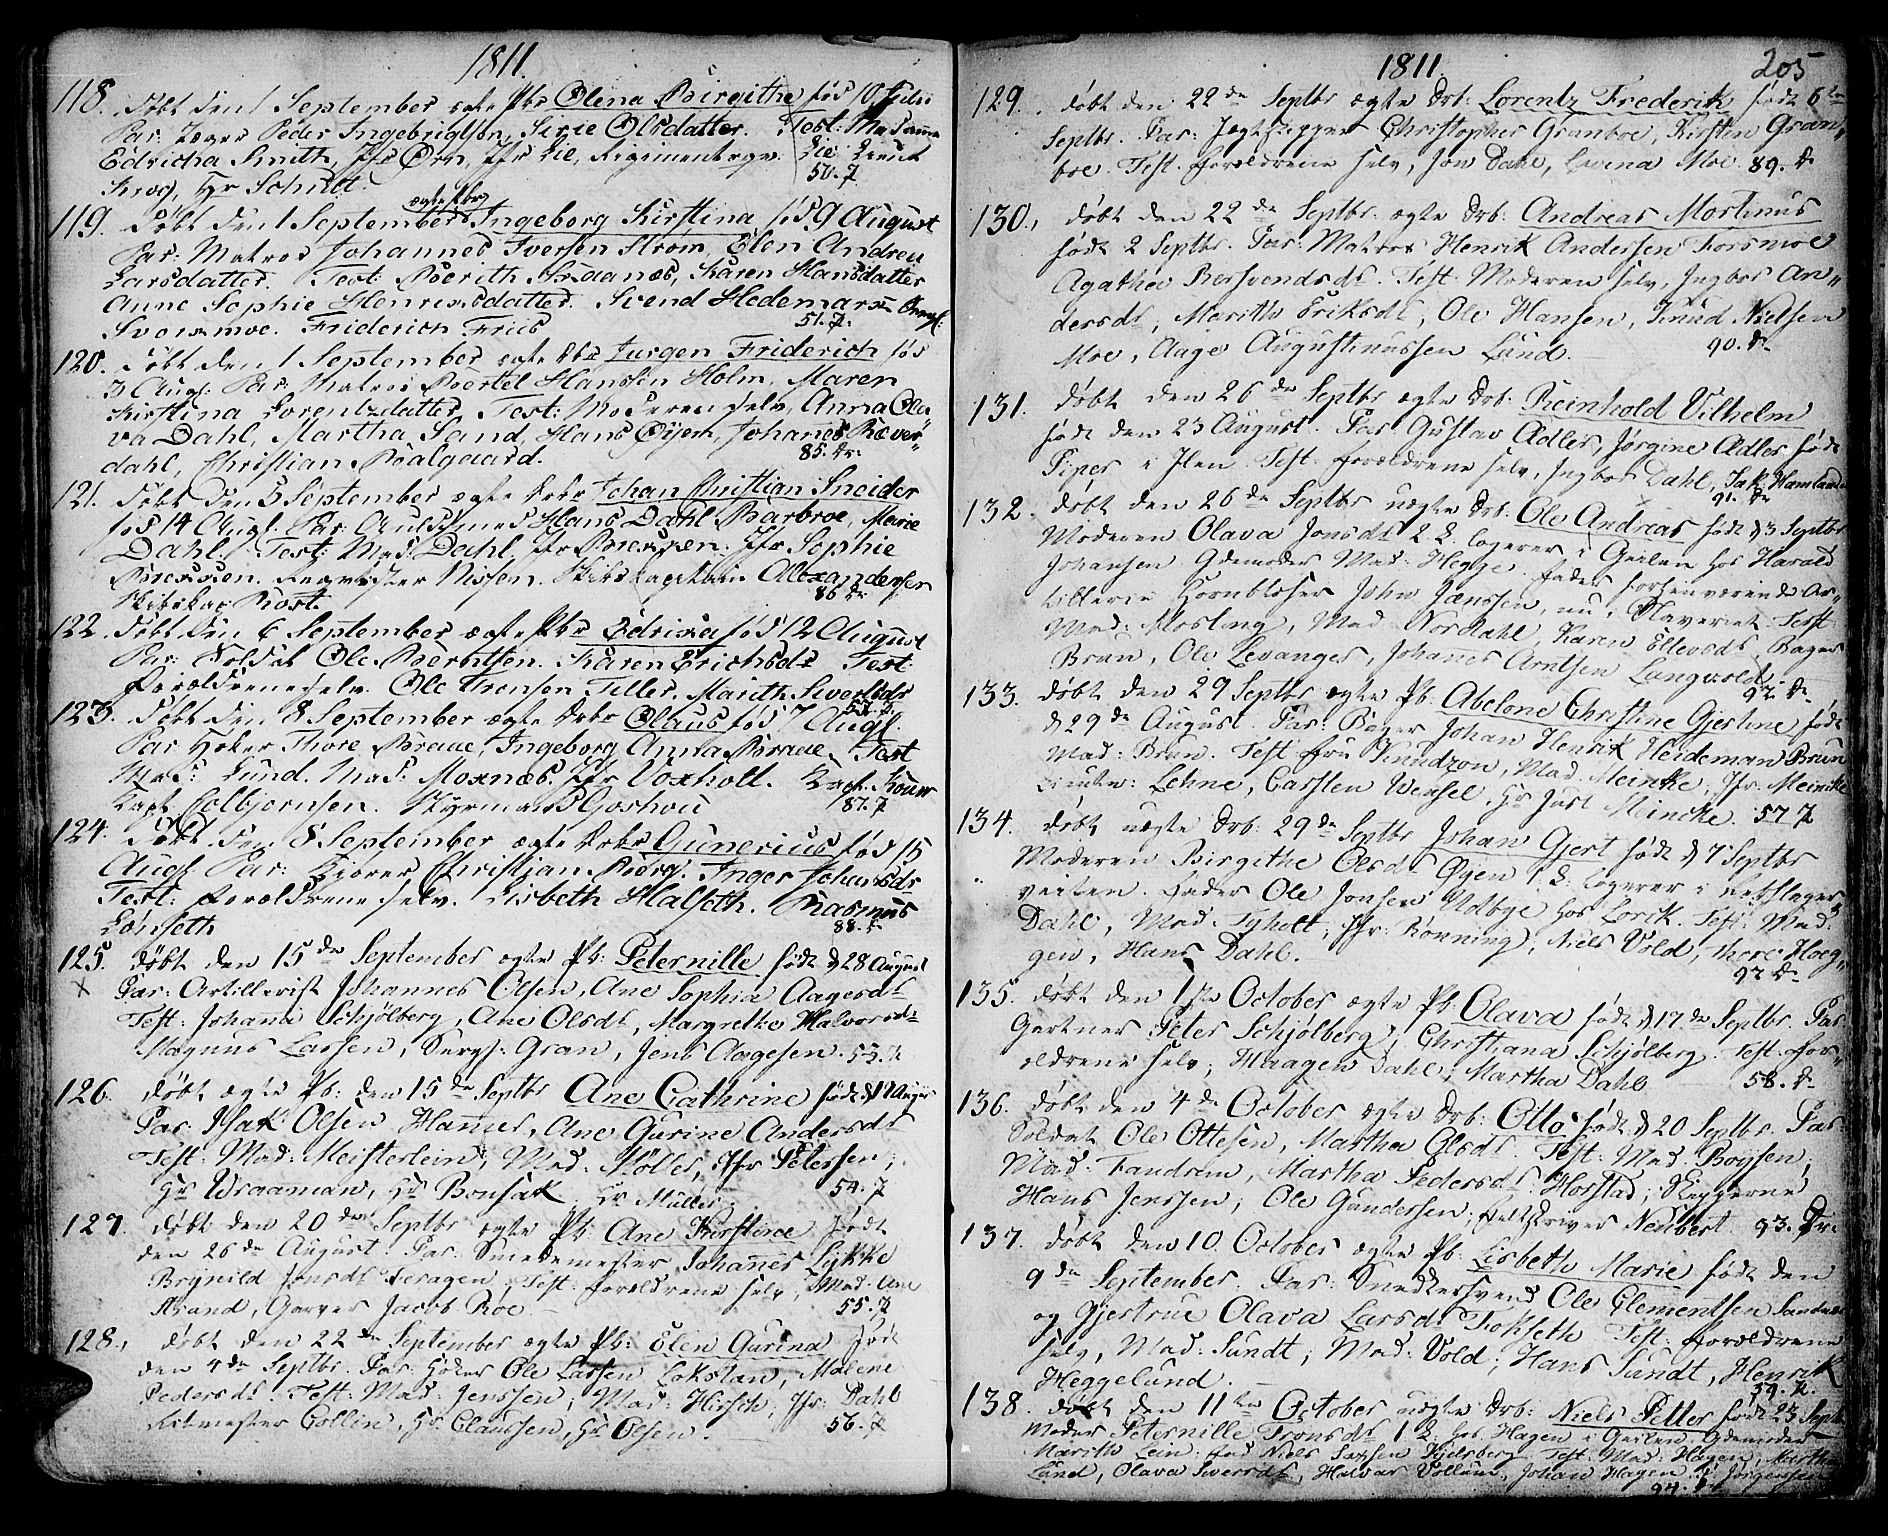 1811.
118. Døbt den 1 September ægte Pbr Olena Birgithe fød 10 Julii
Par: Peder Ingebrigtsen, Sirie Olsdatter. Test: Madame
Edricha Smith, Jfr Ørn, Jfr Lie, Regimentsqv. Lie. Lieut
Krog, Hr Schult. 50. P
ægte Pbr
119. Døbt den 1 September Ingeborg Kirstina fød 9 August
Par: Matros Johannes Iversen Strom, Elen Andrea
Larsdatter. Test: Berith Karen Hansdatter
Anne Sophie Henrichsdatter. Svend Hedemark
Svorsmoe. Friderich Friis 51. P
120. Døbt den 1 September ægte Dbr Jurgen Friderich fød
3 Augl: Par: Matros Bertel Hanssen Holm, Maren
Kirstina Lorentzdatter, Test: Moderen selv, Anna Ole
va Dahl, Martha Sand, Hans Øijem, Johanes Ræver-
dahl, Christian Balgaard. 85. Dr:
121. Døbt den 5 September ægte Dbr Johan Christian Sneider
fød 14 Augl: Par: Guldsmed Hans Dahl Barbroe, Marie
Dahl. Test: Mad. Dahl. Jfr Jfr Sophie
Nissen. Skibskapitain Alexandersen
Skibskap: Rost. 86 Dr
122. Døbt den 6 September ægte Pbr Edricha fød 12 August
Par: Soldat Ole Berntsen. Karen Erichsdr Test:
Forældrene selv. Ole Tronsen Tiller. Marith Siversdr
123. Døbt den 8 September ægte Dbr Olaus fød 7 Augl.
Par Høker Thore Braae, Ingeborg Anna Braae. Test
Mad: Lund. Mad. Moxnæs. Jfr Voxholt.
Capt. Colbjørnsen. Styrmand 87. P
124. Døbt den 8 September ægte Dbr Gunerius fød 15
Augl Par: Christian Berg. Inger Johansdr
Test: Forældrene selv. Lisbeth Halseth. Rasmus
Lønseth 88. Dr
125. Døbt den 15de September ægte Pb: Peternille født d 28 August
Par: Artillerist Johannes Olsen, Ane Sophia Aagesdr
Test: Johanna Schjølberg, Ane Olsdr, Margrethe Halvorsd:
Magnus Larsen, Serg: Gran, Jens Aagesen. 53.
126. Døbt ægte Pb: den 15de Septbr Ane Cathrine født d 1 August
Par: Isak Olsen Hammer, Ane Gurine Andersdr
Test: Mad: Meisterlein, Mad: Møller, Jfr Petersen,
Hr Wraaman, Hr Bonsak. Hr Müller 54. P
127. Døbt den 20de Septbr ægte Pb: Ane Kirstine født
den 26de August. Par: Smedemester Johannes Lykke
Brynild Jonsdr Test: Forældrene selv, Mad: Ane
Strand, Garver Jacob Roe. 55. P
128. Døbt den 22de September ægte Pb: Elen Gurina født
den 4de Septbr. Par: Høker Ole Larsen Lokstan, Malene
Pedersdr. Test: Mad: Jenssen, Mad: Hirsch, Jfr: Dahl
Collin, Hr Claussen, Hr Olsen. 56. P
1811. 205
129. Døbt den 22de Septbr ægte Drb: Lorentz Frederik født 6te
Septbr. Par: Jægtskipper Christopher Granboe, Kirsten Gran-
boe. Test: Forældrene selv, Jon Dahl, Levina Moe. 89. Dr
130. Døbt den 22de Septbr. ægte Drb: Andreas Martinus
født 2 Septbr. Par: Matros Henrik Andersen Korsmoe
Agathe Bersvendsdr. Test: Moderen selv, Ingbor An-
dersdr, Marith Eriksdr, Ole Hansen, Knud Nielsen
Moe, Aage Augustinussen Lund. 90. Dr
131. Døbt den 26de Septbr ægte Drb: Reinhold Vilhelm
født den 23 August. Par Gustav Adler, Jørgine Adler født
Piper i Ilen. Test: Forældrene selv, Ingbor Dahl, Jak: Hamland
91. Dr
132. Døbt den 26de Septbr uægte Drb: Ole Andreas født d 3 Septbr
Moderen Olava Jonsdr 2. L: logerer i Geilen hos Harald
Johansen Gdemoder Mad: Hegge Fader forhenværende Ar-
tillerie Hornblæser John Jænssen, nu i Slaveriet. Test:
Mad: Mosling, Mad Nordahl, Karen Ellevsdr, Bager
Brun, Ole Levanger, Johannes Arntsen Langvold. 92. Dr
133. Døbt den 29 Septbr ægte Pb: Abelone Christine Gjertine født
d 29de August. Par: Bager Johan Henrik Heideman Brun
Mad: Brun. Test Fru Knudzon, Mad. Meincke, Jfr: Meincke
Lieuten: Lehne, Carsten Wensel, Hr Just Meincke. 57 P
134. Døbt uægte Drb: 29de Septbr Johan Gjert født d 7 Septbr
Moderen Birgithe Olsdr Øyen 1. L: logerer i Rebslager-
veiten. Fader Ole Jonsen Udbye hos Lorck. Test: Mad.
Dahl, Mad. Tyholt, Jfr: Rønning, Niels Vold, Thore Hoeg-
gen, Hans Dahl. 92 Dr
135. Døbt den 1ste October ægte Pb: Olava født d 17de Septbr. Par:
Gartner Peter Schjølberg, Christiana Schjølberg. Test: For-
ældrene selv, Haagen Dahl, Martha Dahl 58. Dr
136. Døbt den 4de October ægte Drb: Otto født d 20 Septbr. Par
Soldat Ole Ottesen, Martha Olsdr. Test: Mad Boysen,
Mad: Fandrem, Martha Pedersdr Horstad, Skipperne
Hans Jenssen, Ole Gundersen, Feltskriver Neubert 93. Dr.
137. Døbt den 10 October ægte Pb: Lisbeth Marie født den
9de September. Par: Snedkersvend Ole Clementsen
og Gjertrue Olava Larsdr Fokseth Test: Forældrene
selv, Mad: Sundt, Mad: Vold, Hans Sundt, Henrik
Heggelund. 59. P.
138. Døbt den 11te October uægte Drb: Niels Petter født 23 Septbr
Moder Peternille Tronsdr 1 L: hos Hagen i Geilen, Gdemoder
Marith Lein. Fad Niels Larsen Kjelsberg Test: Mad: Hagen, Martha
Lund, Olava Siversdr, Halvar Vollum, Johan Hagen, Jørgensen
94. Dr